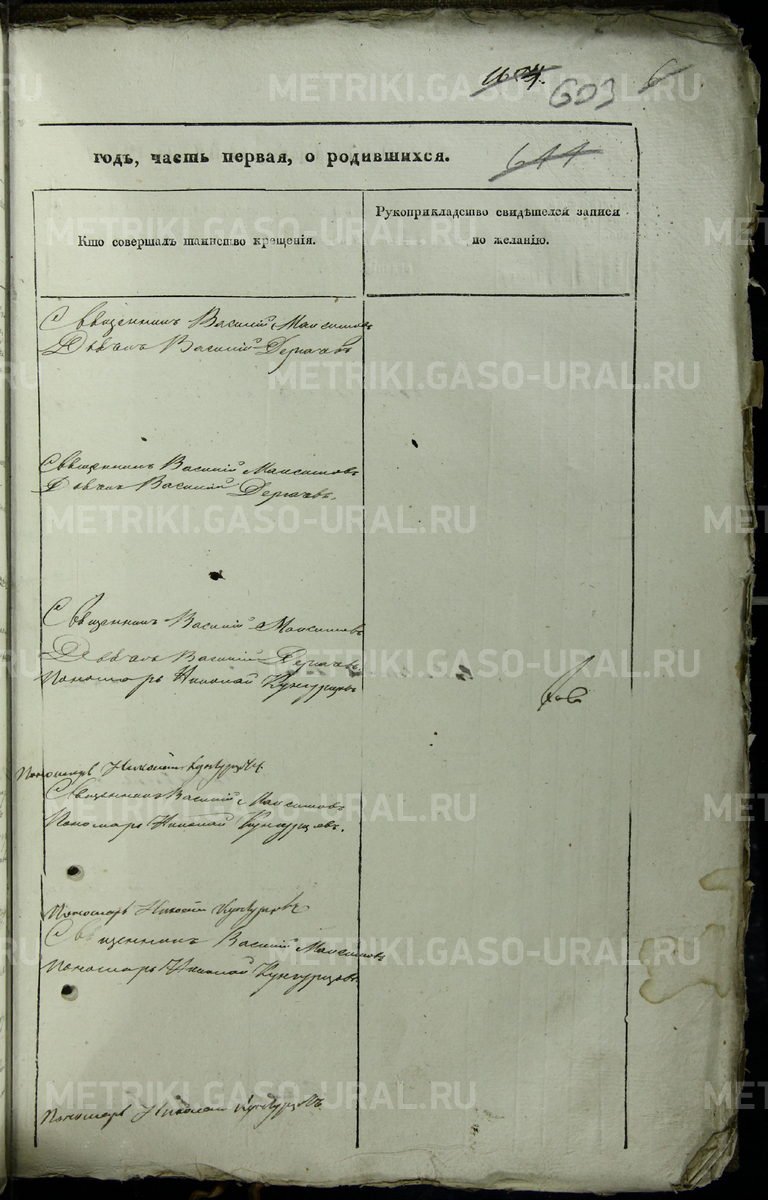 603 6
644
годъ, часть первая, о родившихся.
Кто совершалъ таинство крещенія.
Рукоприкладство свидѣтелей записи
по желанію.
Священникъ Василій Максимовъ
Дьячокъ Василій Дергачевъ
Священникъ Василій Максимовъ
Василій Дергачевъ.
Священникъ Василій Максимовъ
Василій Дергачевъ
Пономарь Николай Кунгурцовъ
Пономарь Николай Кунгурцовъ
Священникъ Василій Максимовъ
Пономарь Николай Кунгурцовъ.
Пономарь Николай Кунгурцовъ
Священникъ Василій Максимовъ
Пономарь Николай Кунгурцовъ.
Пономарь Николай Кунгурцовъ
METRIKI.GASO-URAL.RU